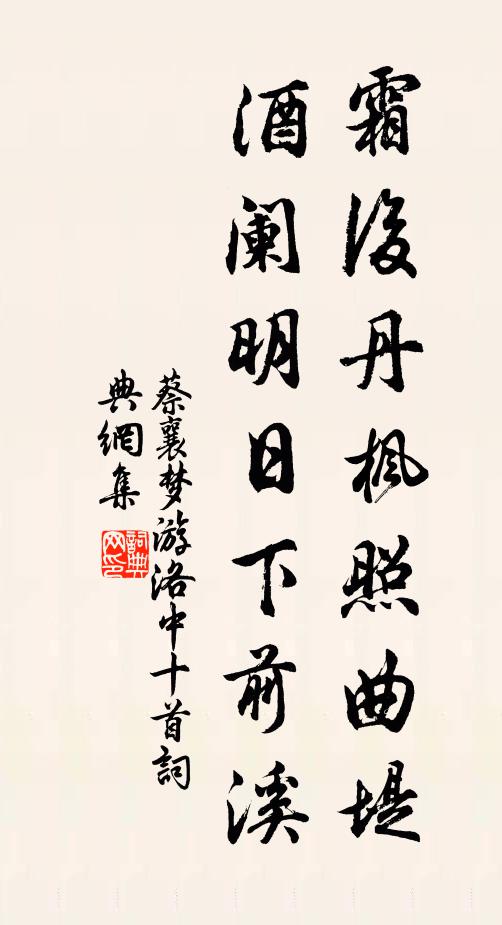 霜後丹楓照曲堤
酒阑明日下前溪
蔡襄梦游洛中十首詞
典網集
詞典网印